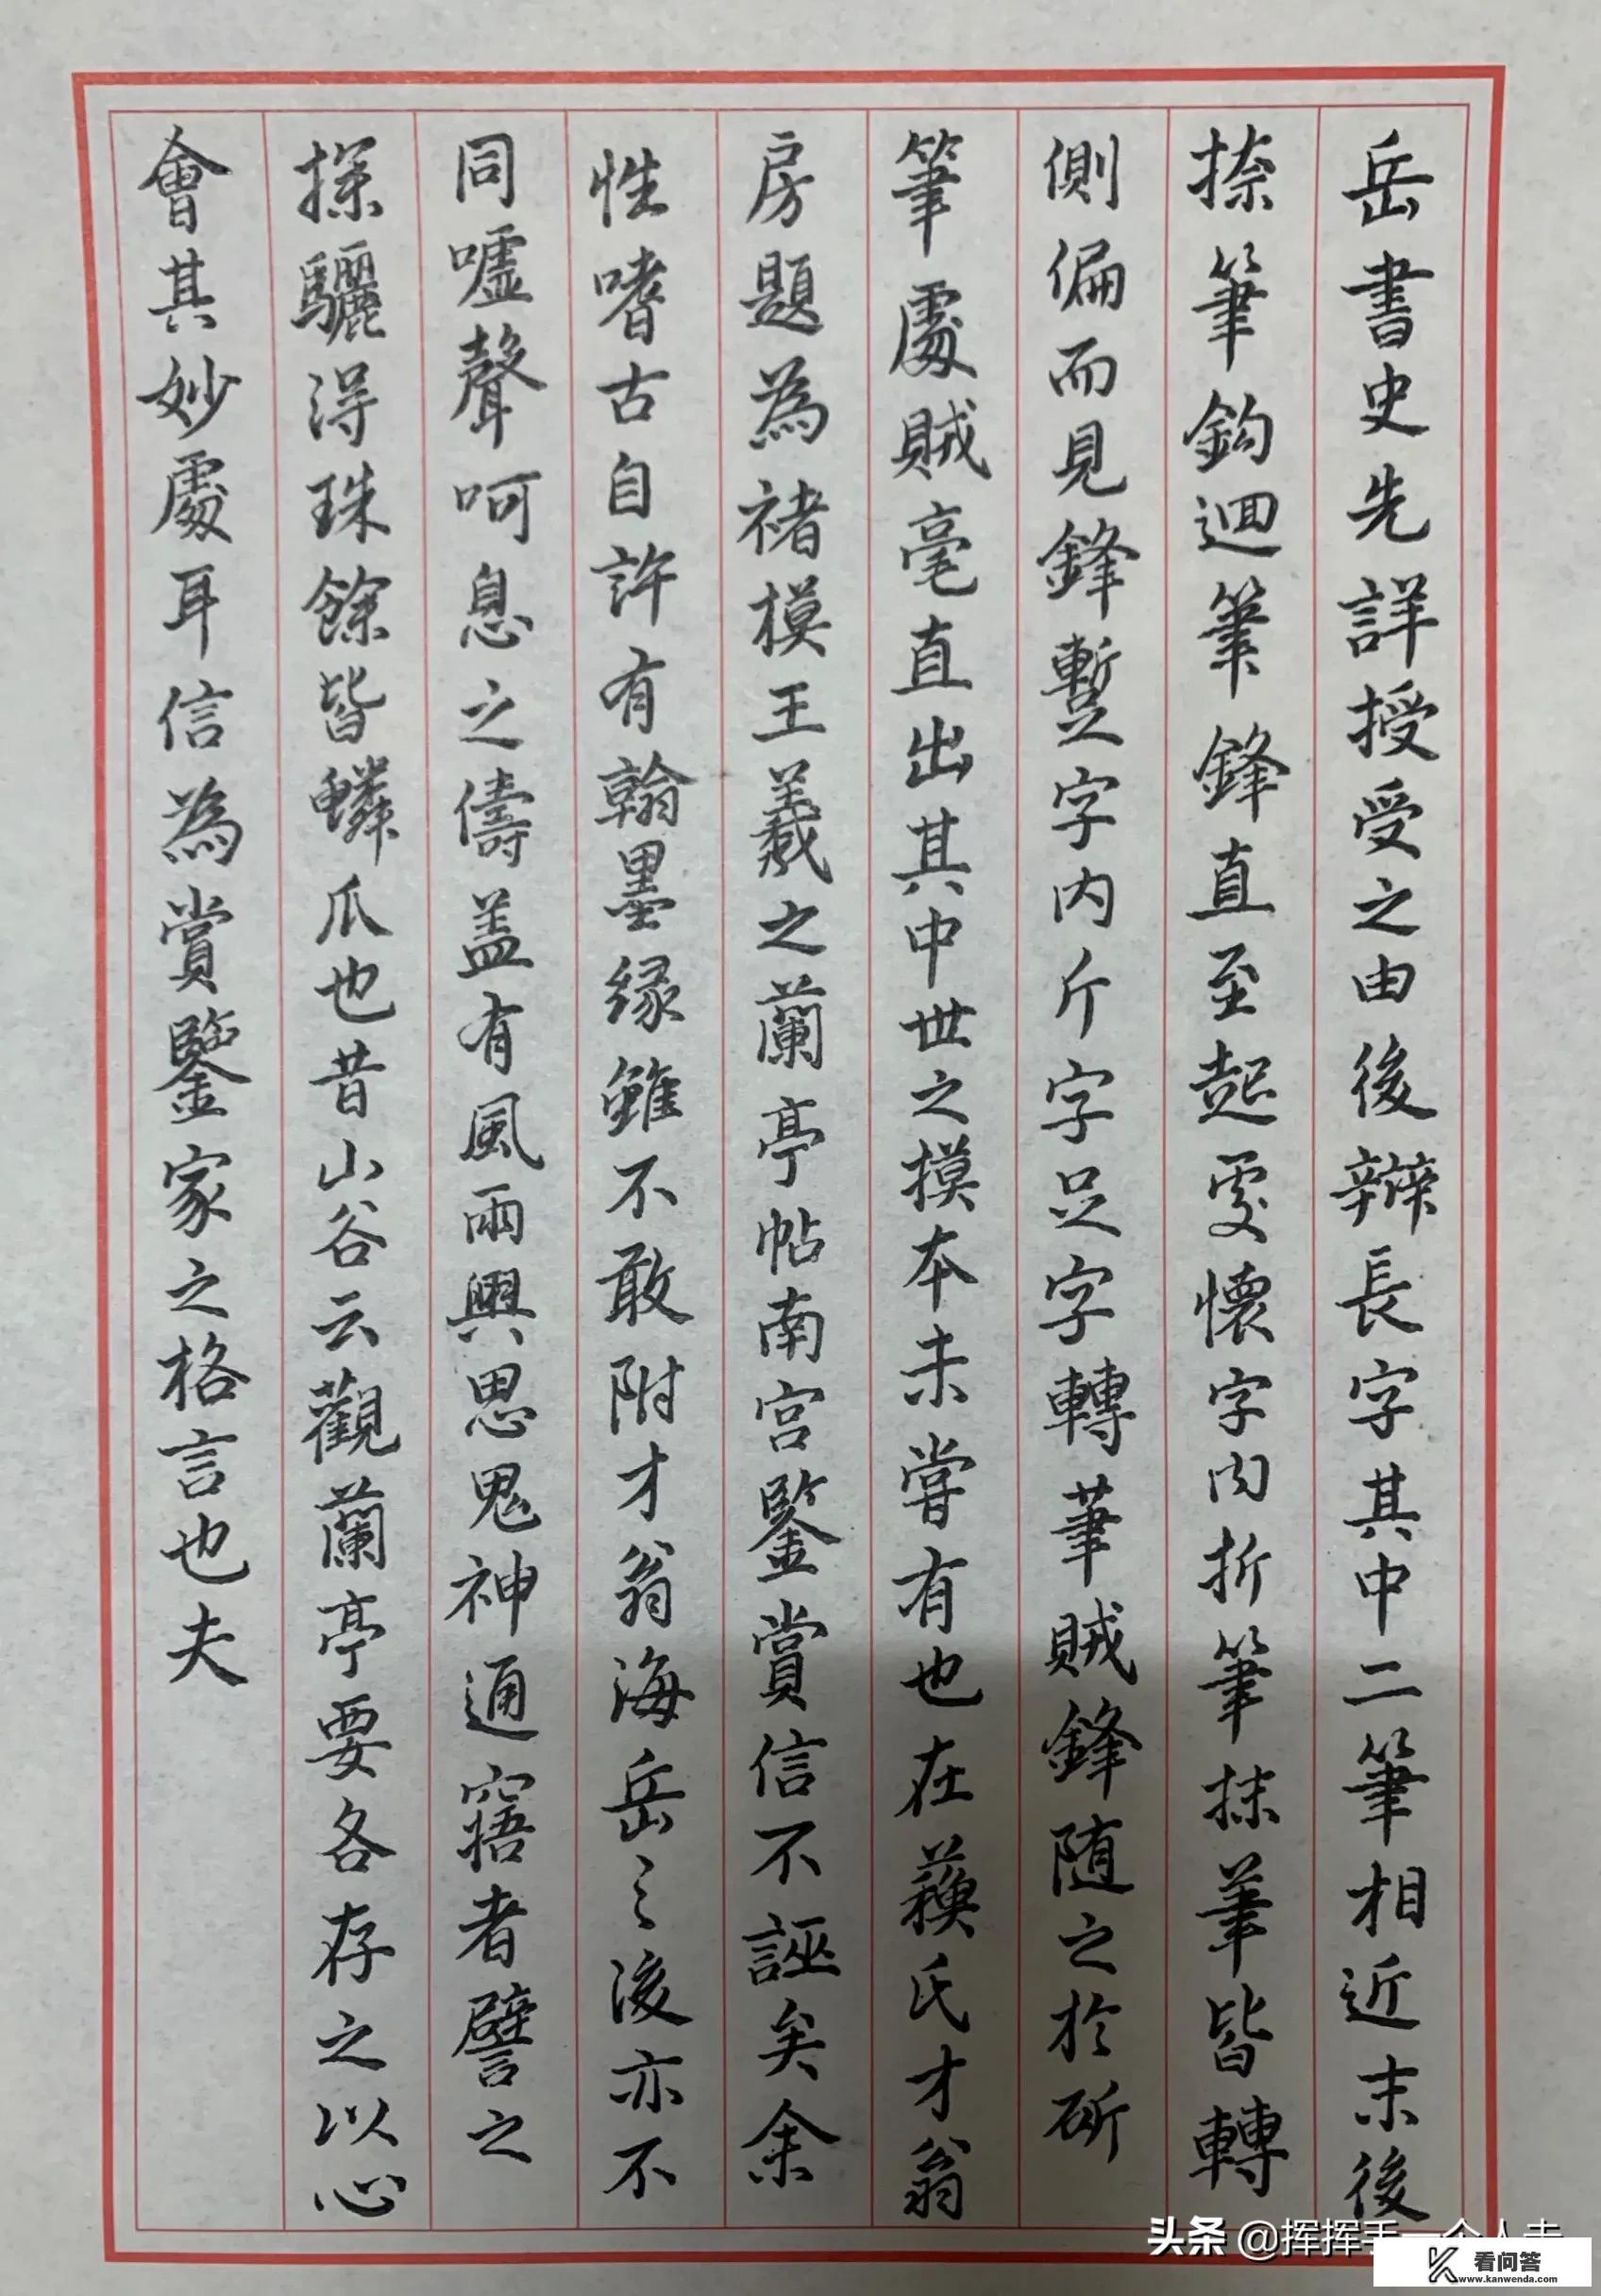 岳書史先詳授受之由後辯長字其中二筆相近末後
捺筆鈎迴筆鋒直至起處懷字内折筆抹筆皆轉
側偏而見鋒蹔字内斤字足字轉筆賊鋒随之於斫
筆處賊毫直出其中世之摸本未嘗有也在蘓氏才翁
房題為褚模王羲之蘭亭帖南宫鑒賞信不誣矣余
性嗜古自許有翰墨緣雖不敢附才翁海岳之後亦不
同嘘聲呵息之儔盖有風雨興思鬼神通寤者譬之
探驪得珠餘皆鱗爪也昔山谷云觀蘭亭要各存之以心
會其妙處耳信為賞鑒家之格言也夫
头条 @挥挥手一个人走
看问答
www.kanwenda.com